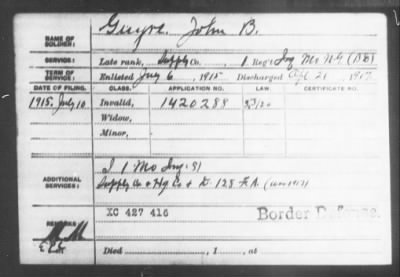 NAME OF SOLDIER: Guyre, John B.
SERVICE: Late rank, Supply Co., 1 Reg't Inf Mo NG (BD)
TERM OF SERVICE: Enlisted July 6, 1915. Discharged Apl 21, 1917.
DATE OF FILING. CLASS. APPLICATION NO. LAW CERTIFICATE NO.
1915, July 10 Invalid, 1420288
Widow,
Minor,
ADDITIONAL SERVICES: I 1 Mo Inf
Supply Co & Hq Co & D. 128 F.A. (WW 1917)
REMARKS XC 427 416 Border Defense.
Died , 1 , at